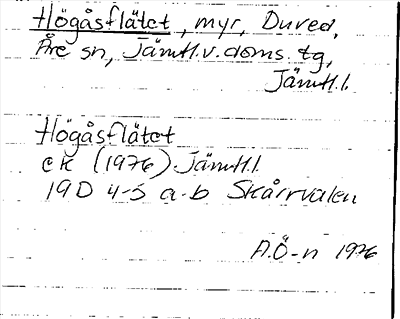 Högåsflätet, myr, Duved,
Åre sn, Jämtl.v.doms.tg,
Jämtl.l.
Högåsflätet
ek (1976) Jämtl.l.
19D 4-5 a-b Skårrvålen
A.Ö-n 1976